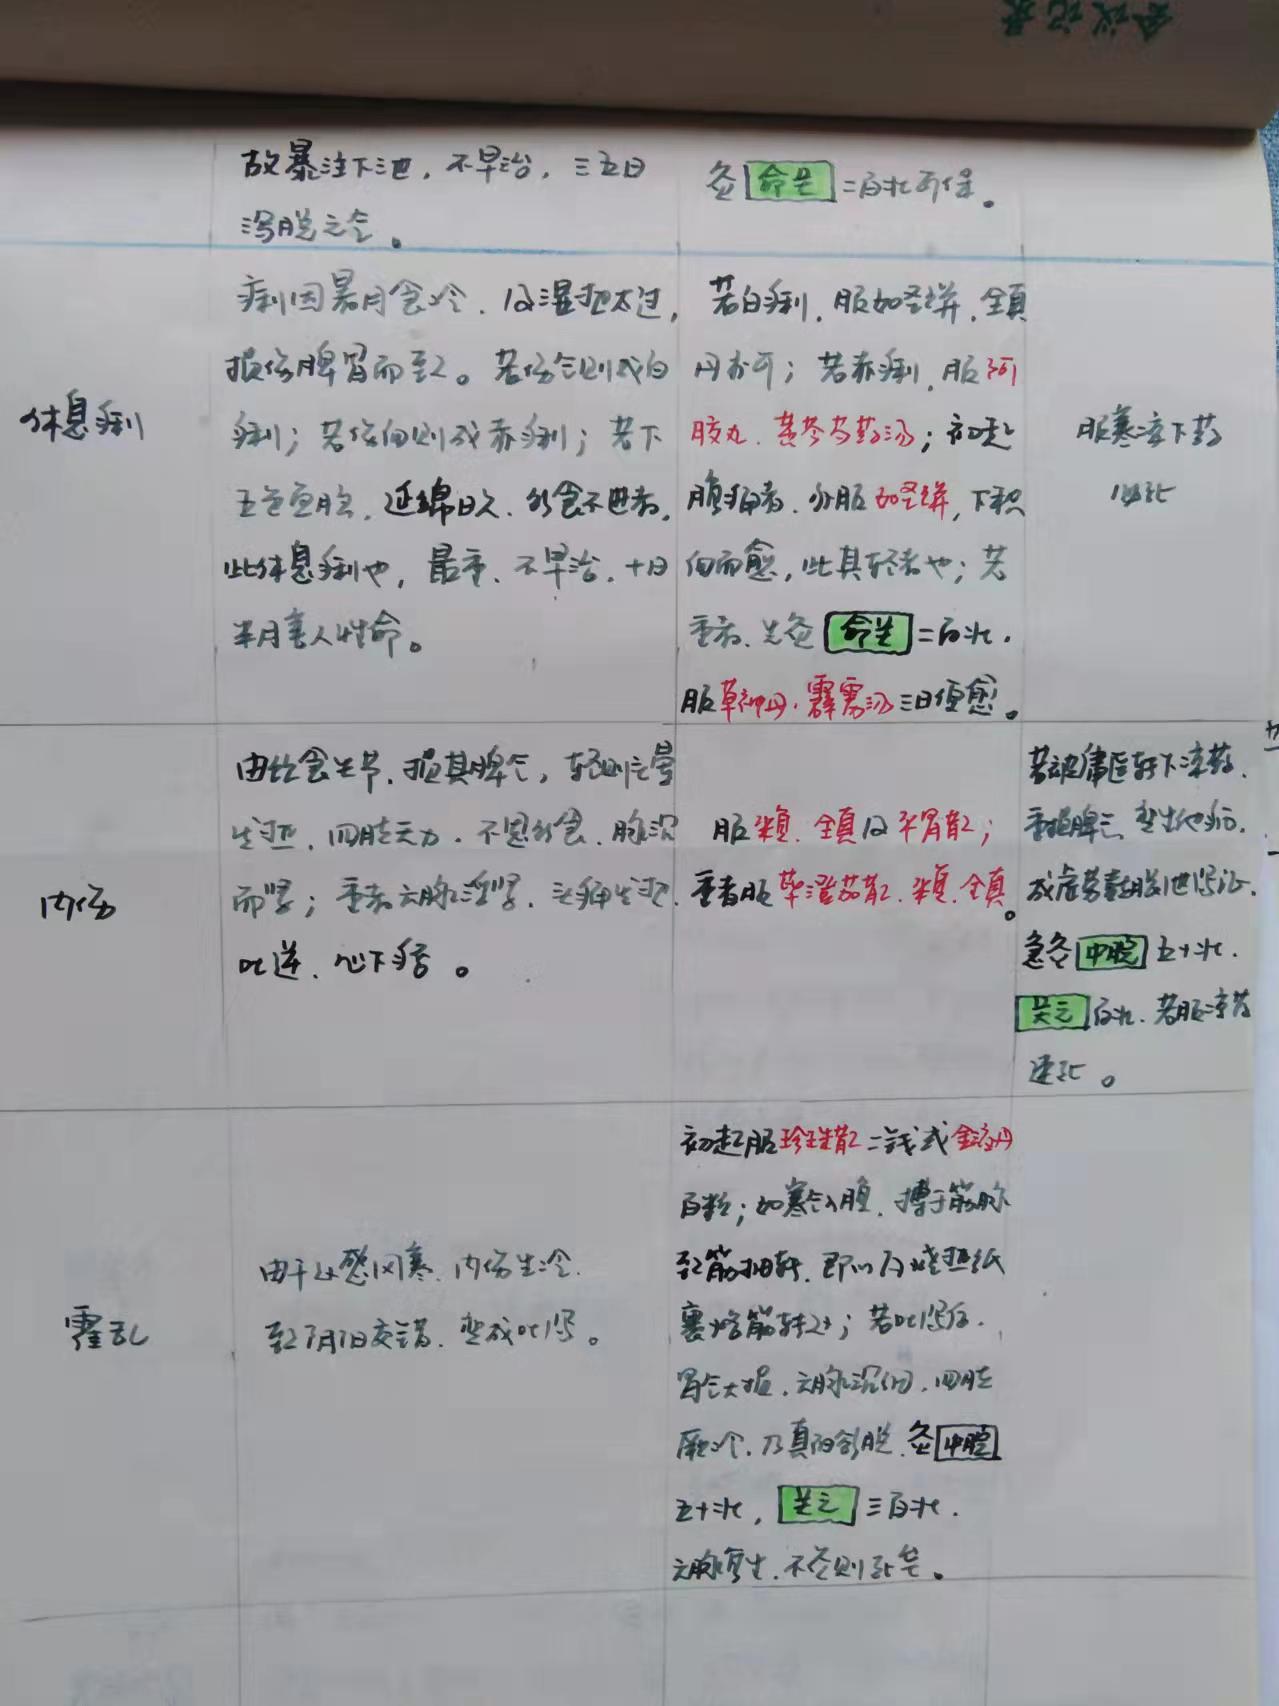 会议记录
故暴注下泄，不早治，三五日
泻脱元气。
灸命关二百壮可保。
休息痢
痢因暑月食冷，及湿热太过，
损伤脾胃而致。若伤气则成白
痢；若伤血则成赤痢；若下
五色鱼脑，延绵日久，饮食不进者，
此休息痢也，最重，不早治，十日
半月害人性命。
若白痢，服如圣饼，全真
丹亦可；若赤痢，服阿
胶丸、黄芩芍药汤；初起
腹痛者，亦服如圣饼，下积
血而愈，此其轻者也；若
重者，先灸命关二百壮，
服草神丹、霹雳汤三日便愈。
服寒凉下药
必死
内伤
由饮食失节，损其脾气，轻则头晕
发热，四肢无力，不思饮食，脉沉
而紧；重者六脉浮紧，头痛发热，
吐逆，心下痞。
服来复、全真及平胃散；
重者服荜澄茄散、来复、全真。
若被庸医转下凉药，
重损脾气，变生他病，
成虚劳臌胀泄泻证，
急灸中脘五十壮，
关元百壮，若服凉药
速死。
霍乱
由于外感风寒，内伤生冷，
致阴阳交错，变成吐泻。
初起服珍珠散二钱或金液丹
百粒；如寒气入腹，搏于筋脉
致筋抽转，即以瓦烧热纸
裹烙筋转处；若吐泻后，
胃气大损，六脉沉细，四肢
厥冷，乃真阳欲脱，灸中脘
五十壮，关元三百壮，
六脉复生，不灸则死矣。